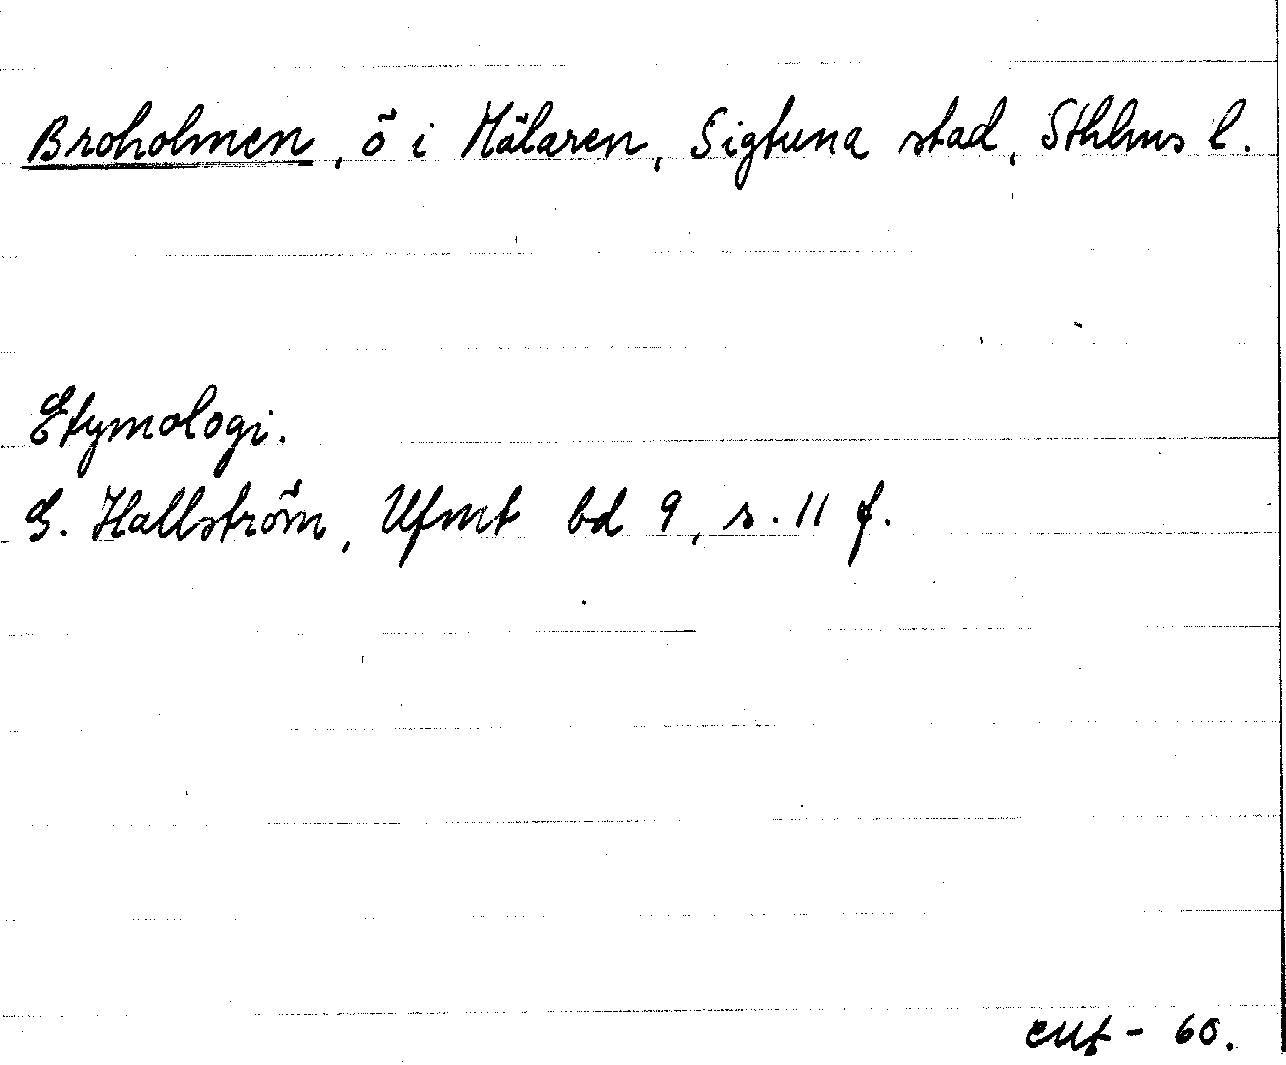 Broholmen, ö i Mälaren, Sigtuna stad, Sthlms l.
Etymologi.
G. Hallström, Ufmt bd 9, s. 11 f.
- 60.